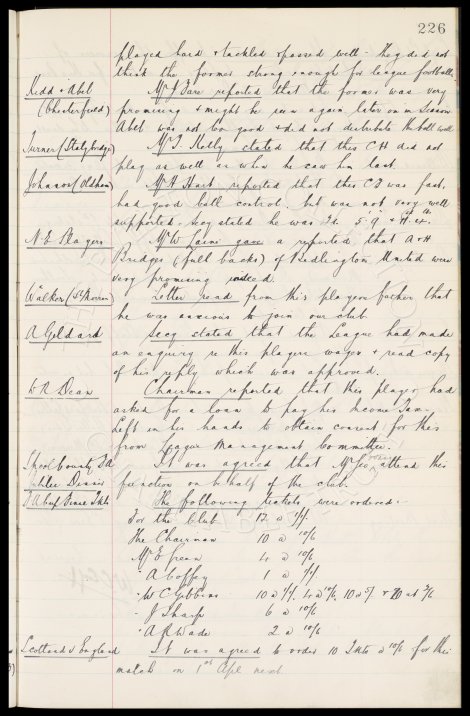 226
played hard & tackled & passed well - they did not
think the former strong enough for league football.
Kidd & Abel Mr J. Fare reported that the former was very
(Chesterfield) promising & might be seen again later on in season
Abel was not too good & did not distribute the ball well
Turner (Stalybridge) Mr T. Kelly stated that this CH did not
play as well as when he saw him last
Johnson (Oldham) Mr H Hart reported that this CF was fast,
had good ball control, but was not very well
supported. Secy stated he was 5' 9"
N.E. Players Mr W Laine gave a reported that A & H
Bridges (full backs) of Bedlington United were
very promising indeed.
Walker (St Mirren) Letter read from this players father that
he was anxious to join our club
A Geldard Secy stated that the League had made
an enquiry re this players wages & read copy
of his reply which was approved.
W R Dean Chairman reported that this player had
asked for a loan to pay his Income Tax -
Left in his hands to obtain consent for this
from League Management Committee.
L'pool County FA It was agreed that Mr attend this
Dinner function on behalf of the club.
F A Cup Final Tkts The following tickets were ordered:-
For the Club 12 @
The Chairman 10 @ 10/6
Mr E Green 4 @ 10/6
" A Coffey 1 @
" W C Gibbins 10 @ 4 @ 10/6, 10 @ 5/- &
" J Sharp 6 @ 10/6
" A R Wade 2 @ 10/6
Scotland v England It was agreed to order 10 Tkts @ 10/6 for this
match on 1st Apl next